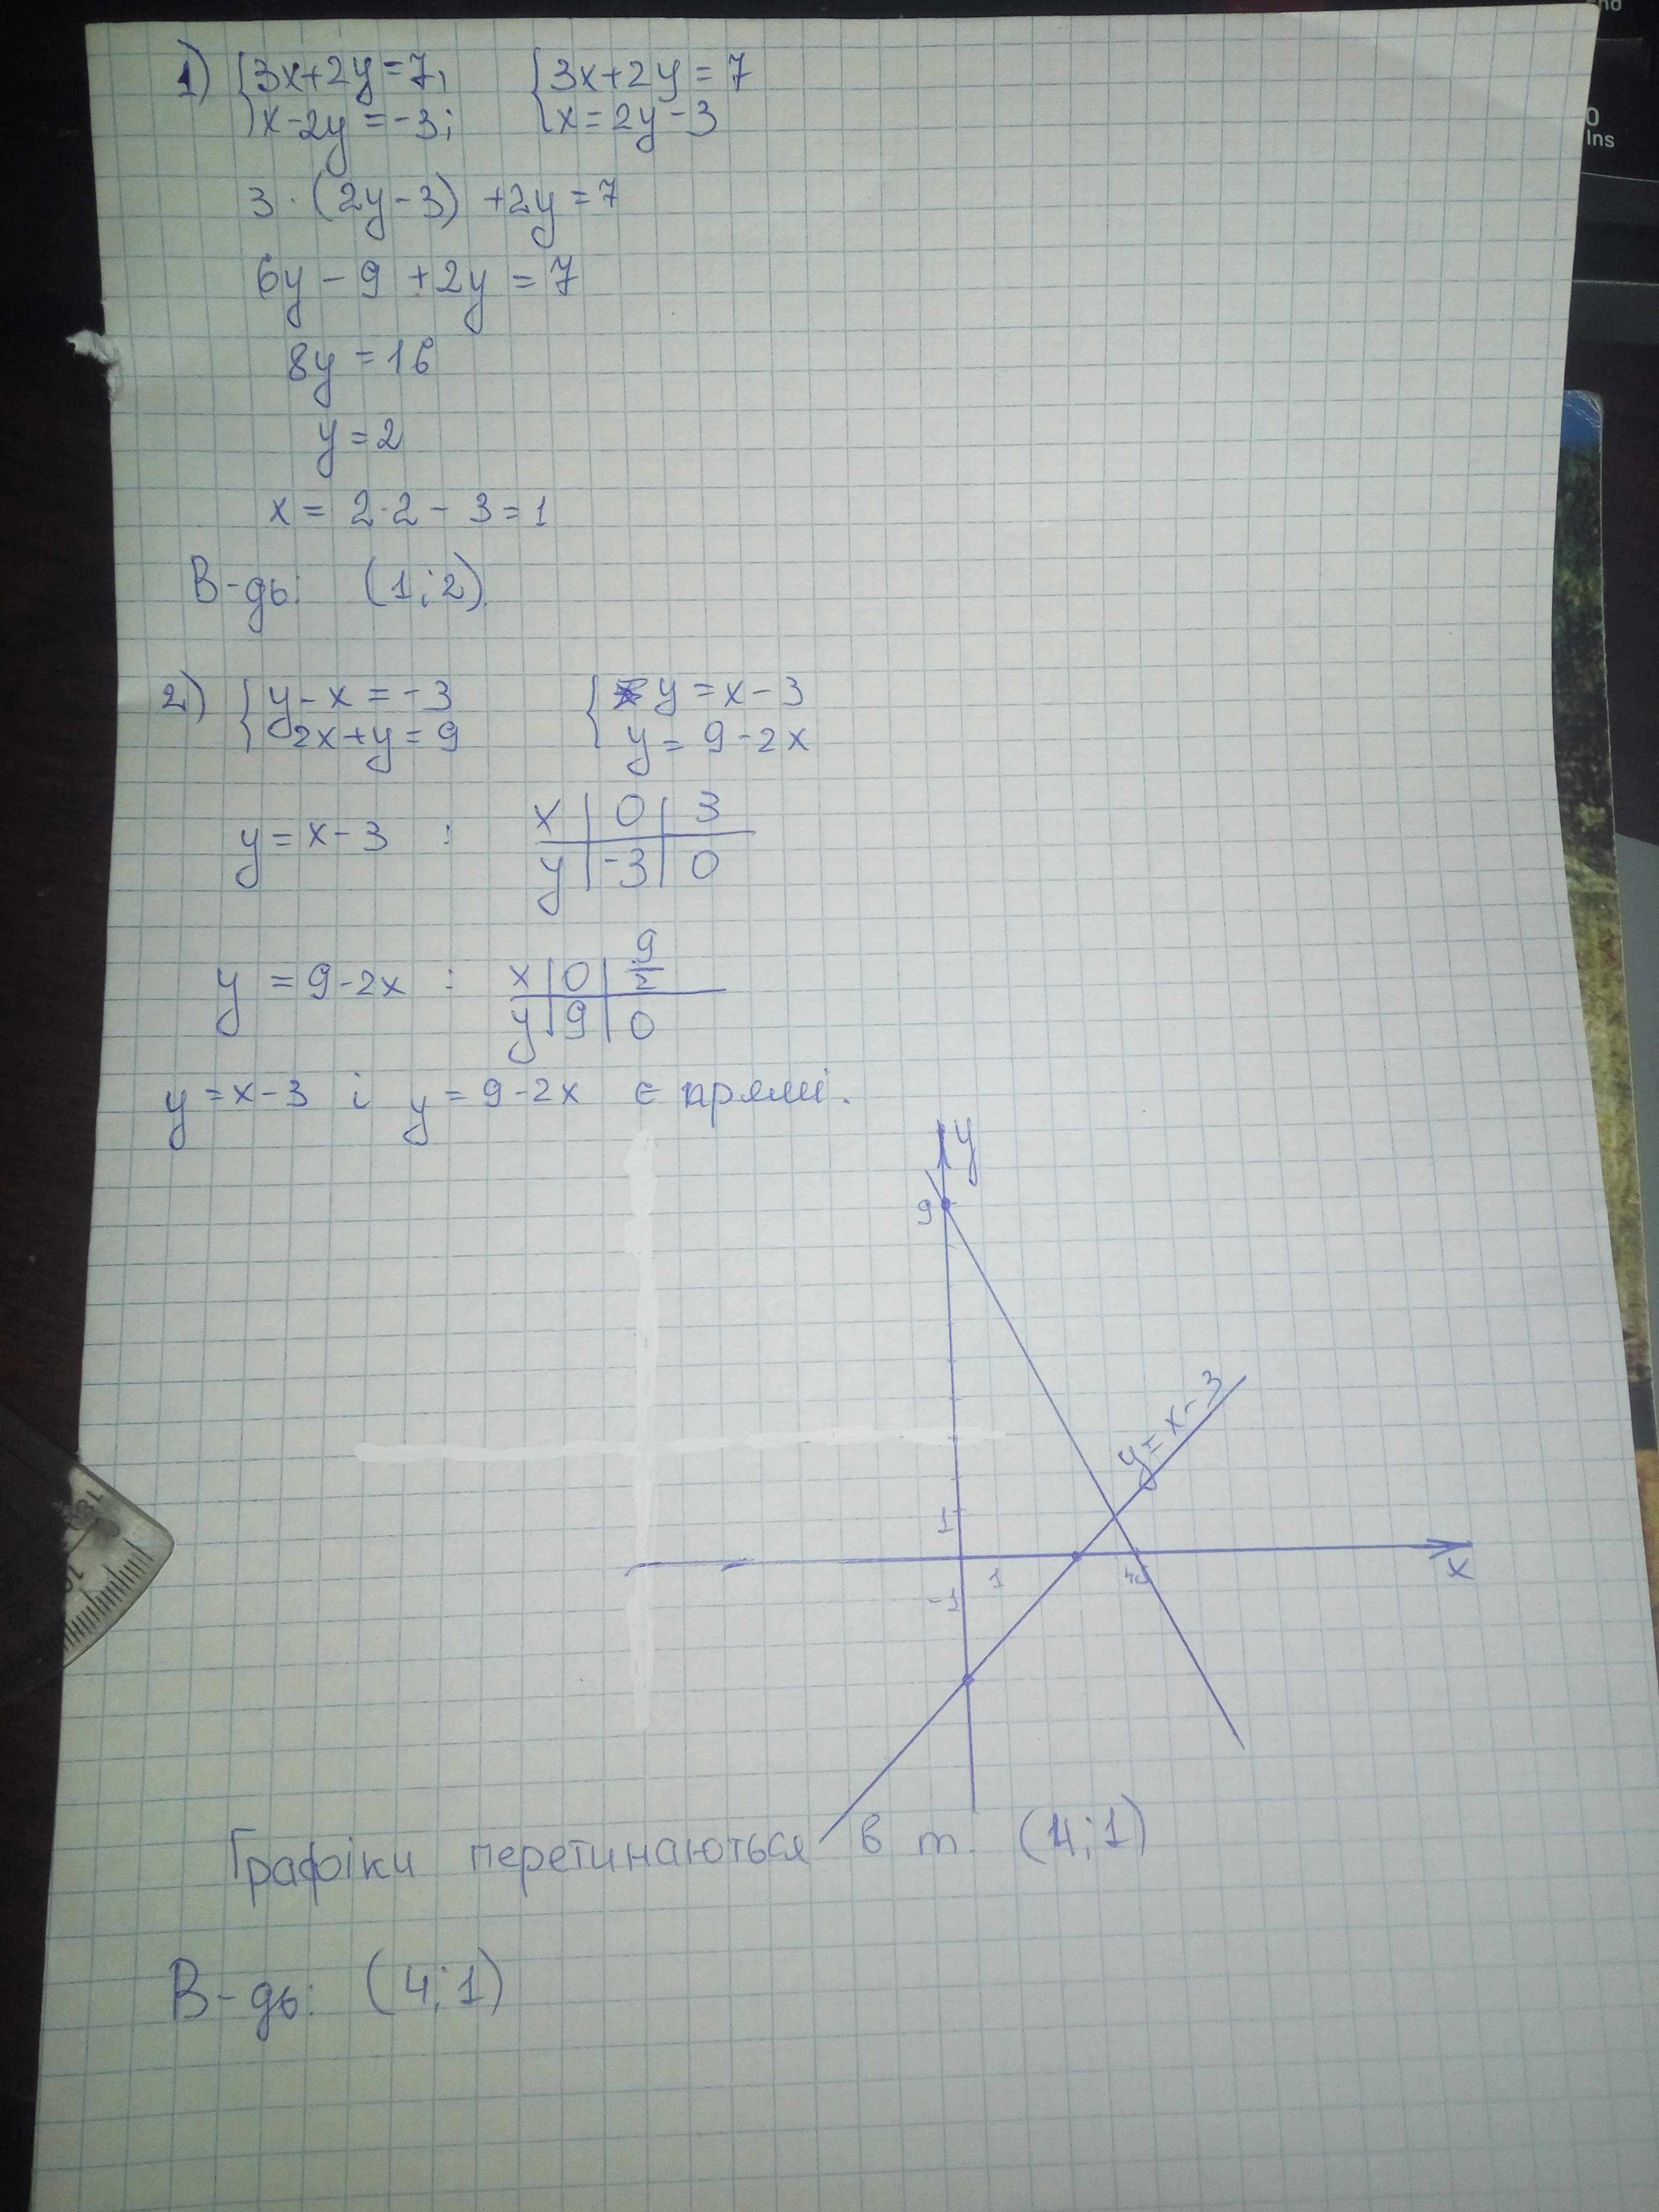 1) {3x+2y=7, {3x+2y=7
x-2y=-3; x=2y-3
3·(2y-3)+2y=7
6y-9+2y=7
8y=16
y=2
x=2·2-3=1
В-дь: (1;2).
2) {y-x=-3 {y=x-3
2x+y=9 y=9-2x
y=x-3 : x | 0 | 3
y | -3 | 0
y=9-2x : x | 0 | 9/2
y | 9 | 0
y=x-3 і y=9-2x є прямі.
y
9
y=x-3
1
1
x
-1
Графіки перетинаються в т. (4;1)
В-дь: (4;1)
End
0
Ins